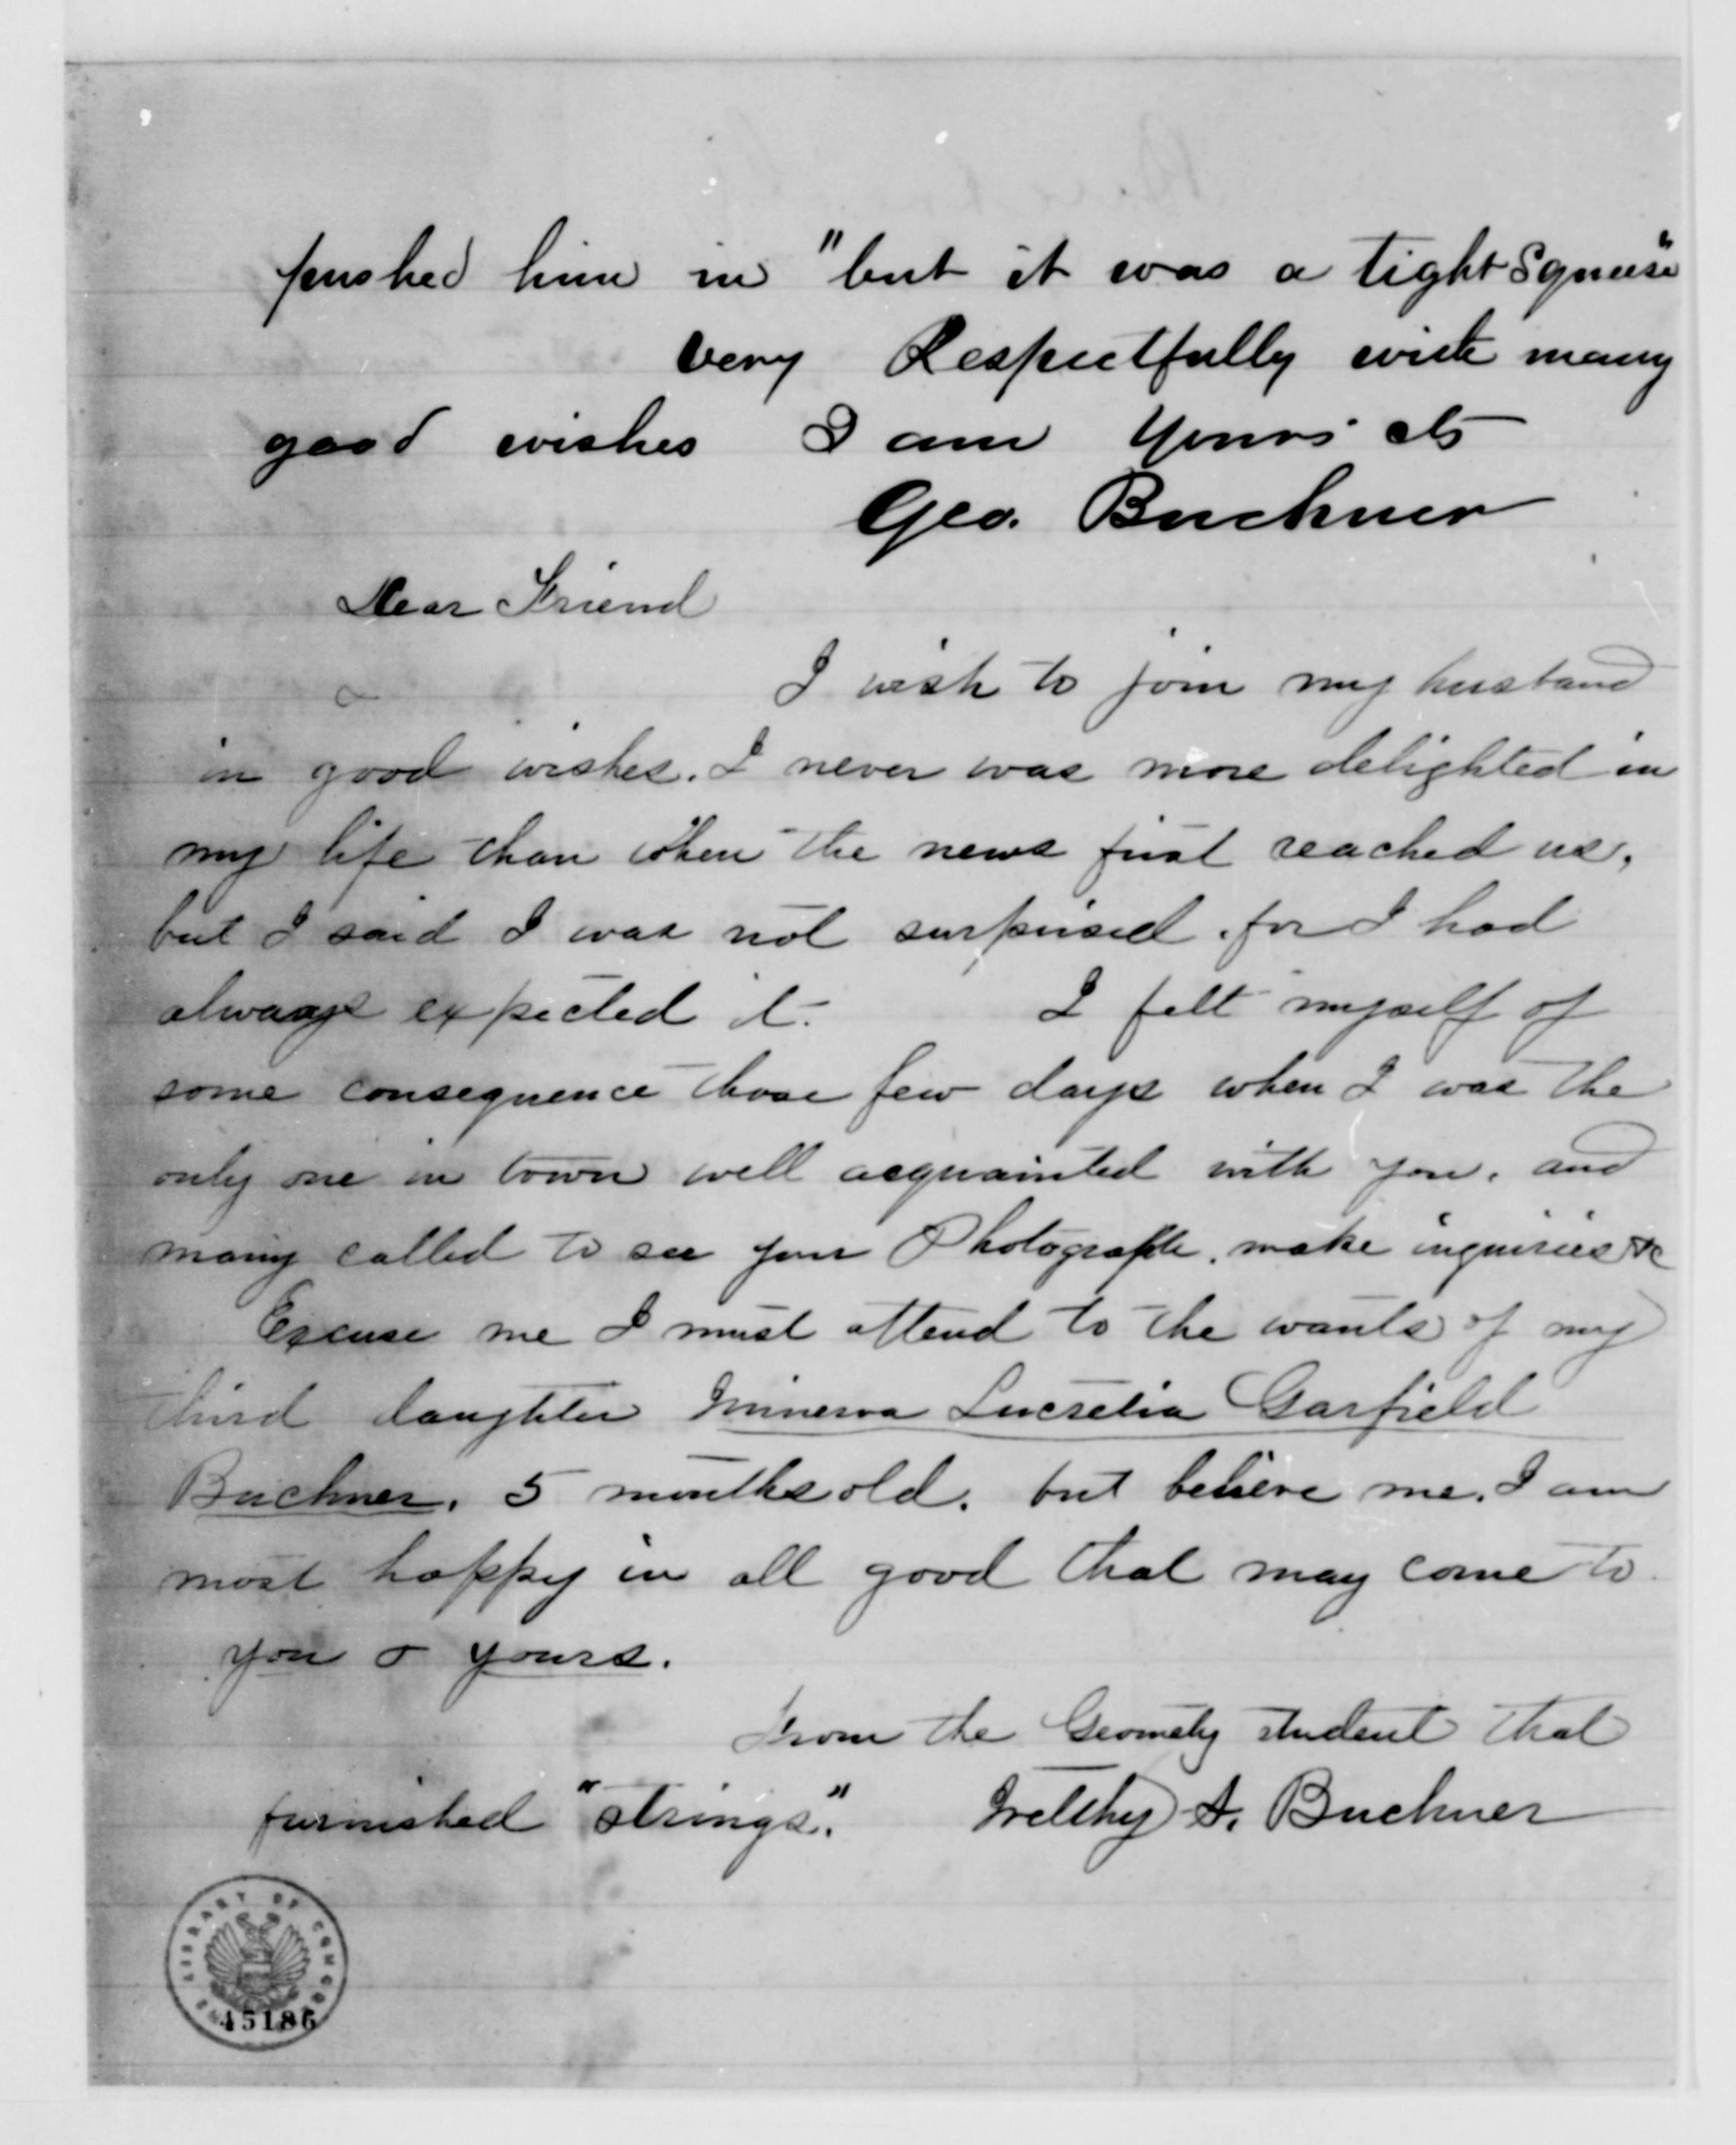 pushed him in "but it was a tight Squeese"
Very Respectfully with many
good wishes I am Yours etc
Geo. Buckner
Dear Friend
I wish to join my husband
in good wishes. I never was more delighted in
my life than when the news first reached us,
but I said I was not surprised, for I had
always expected it. I felt myself of
some consequence those few days when I was the
only one in town well acquainted with you, and
many called to see your Photograph, make inquiries &c
Excuse me I must attend to the wants of my
third daughter Minerva Lucretia Garfield
Buckner, 5 months old, but believe me, I am
most happy in all good that may come to
you & yours.
From the Geometry student that
furnished "strings." A. Buckner
LIBRARY OF CONGRESS
45186